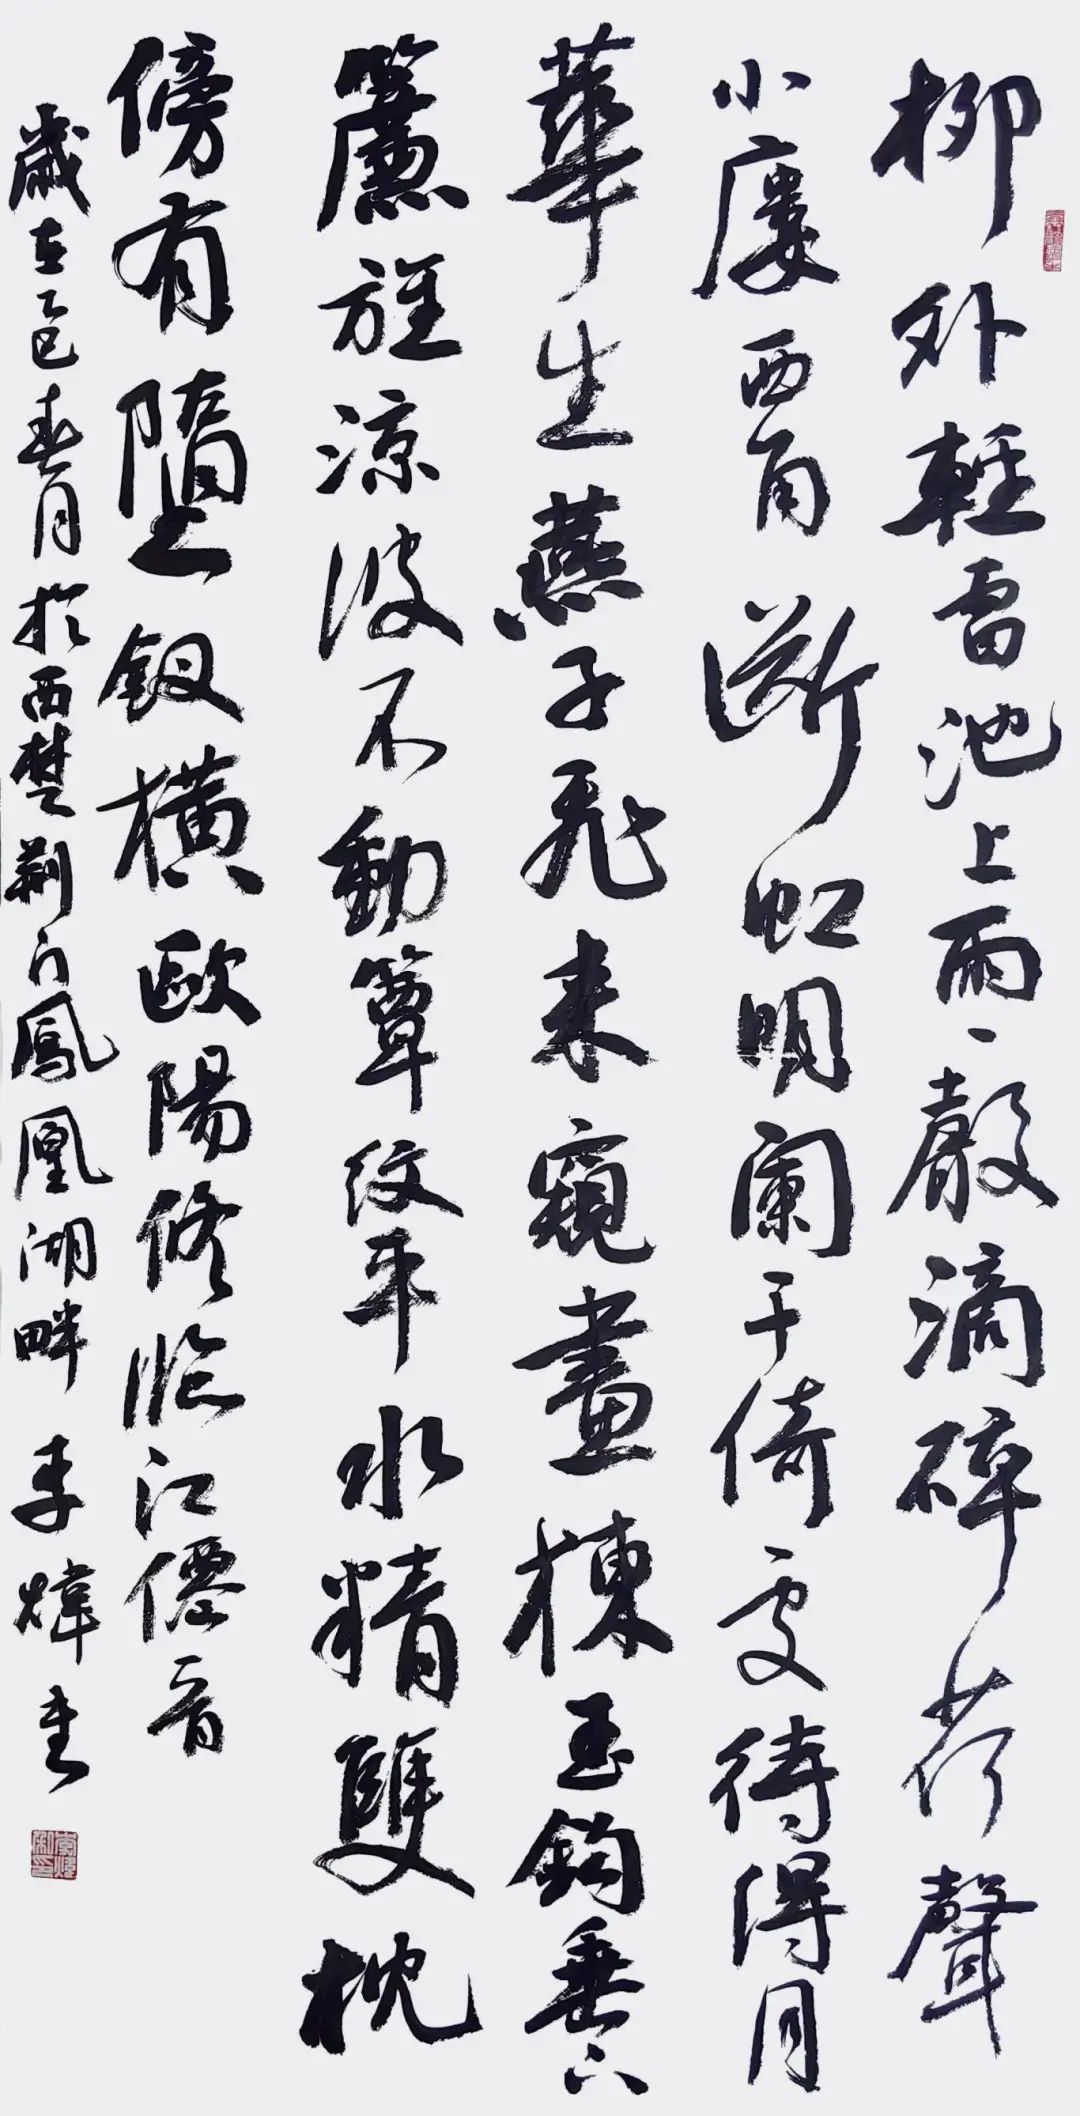 柳外輕雷池上雨雨聲滴碎荷聲
小廔西角斷虹明闌干倚處待得月
華生燕子飛來窺畫棟玉鉤垂下
簾旌涼波不動簟紋平水精雙枕
傍有墮釵橫歐陽修臨江僊音
歲在乙巳春月於西楚荊門鳳凰湖畔李煒書